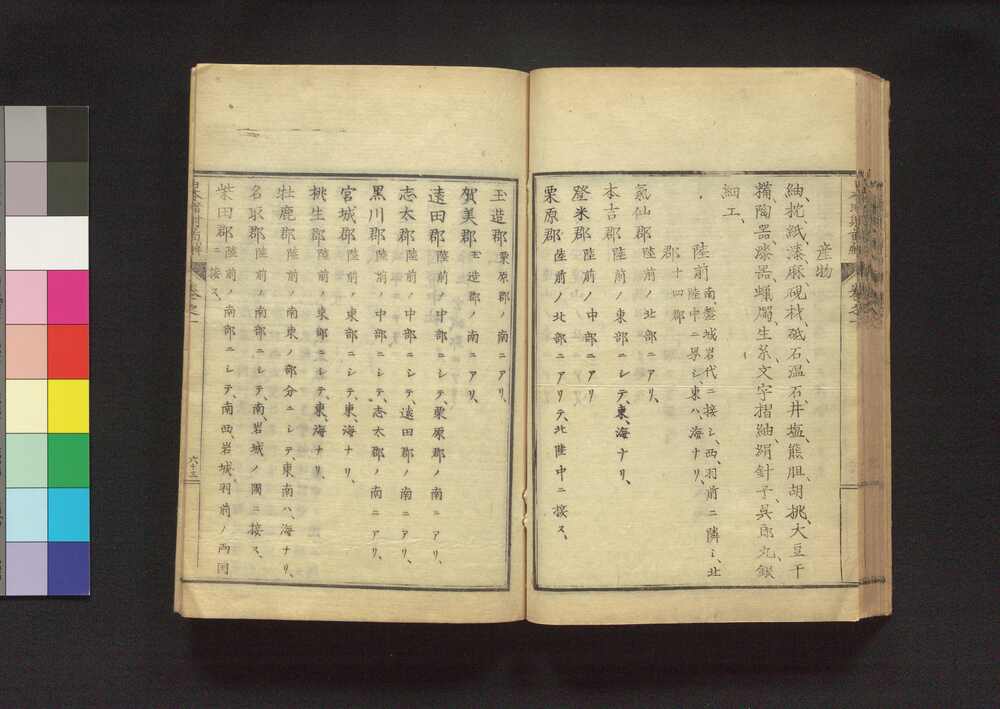 産物
紬、紙、漆、麻、硯材、砥石、温石、井塩、熊胆、胡桃、大豆、干
陶器、漆器、蝋燭、生糸、文字摺紬、絹針子、呉郎丸、銀
細工、
陸前 南、盤城岩代ニ接シ、西、羽前ニ隣シ、北
陸中ニ界シ、東ハ、海ナリ、
郡十四郡
氣仙郡 陸前ノ北部ニアリ、
本吉郡 陸前ノ東部ニシテ、東、海ナリ、
登米郡 陸前ノ中部ニアリ
栗原郡 陸前ノ北部ニアリテ、北陸中ニ接ス、
玉造郡 栗原郡ノ南ニアリ、
賀美郡 玉造郡ノ南ニアリ、
遠田郡 陸前ノ中部ニシテ、栗原郡ノ南ニアリ、
志太郡 陸前ノ中部ニシテ、遠田郡ノ南ニアリ、
黒川郡 陸前ノ中部ニシテ、志太郡ノ南ニアリ、
宮城郡 陸前ノ東部ニシテ、東、海ナリ、
桃生郡 陸前ノ東部ニシテ、東、海ナリ、
牡鹿郡 陸前ノ南東ノ部分ニシテ、東南ハ、海ナリ、
名取郡 陸前ノ南部ニシテ、南、岩城ノ國ニ接ス、
柴田郡 陸前ノ南部ニシテ、南西、岩城、羽前ノ両国
ニ接ス、
六十三